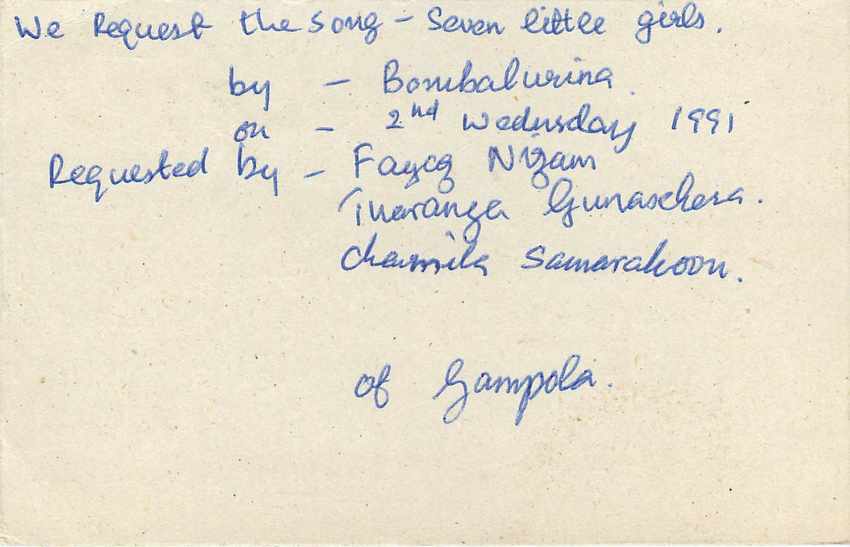 We Request the song - Seven little girls.
by - Bombalurina.
on - 2nd Wednesday 1991
Requested by - Fayeq Nizam
Tharanga Gunasekera.
Chamila Samarakoon.
of Gampola.